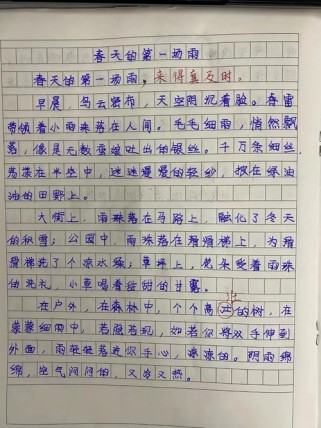 春天的第一场雨
春天的第一场雨，来得真及时。
早晨，乌云密布，天空阴沉着脸。春雷
带领着小雨珠落在人间。毛毛细雨，悄然飘
落，像是无数蚕娘吐出的银丝。千万条细丝，
荡漾在半空中，迷迷漫漫的轻纱，披在绿油
油的田野上。
大街上，雨珠落在马路上，融化了冬天
的积雪；公园中，雨珠落在滑滑梯上，为滑
滑梯洗了个凉水澡；草坪上，花朵受着雨珠
的洗礼，小草喝着甜甜的甘露。
在户外，在森林中，个个高壮的树，在
蒙蒙细雨中，若隐若现，如若你将双手伸到
外面，雨轻轻落进你手心，凉凉的。阴雨绵
绵，空气闷闷的，又冷又热。